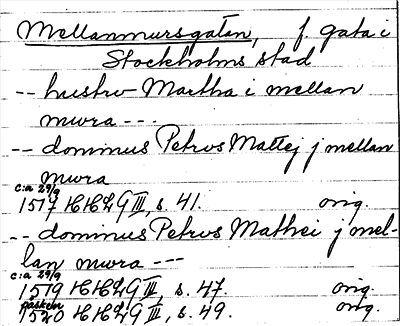 Mellanmursgatan, f. gata i
Stockholms stad
-- hustrv Martha i mellan
mwra ---
-- dominus Petrvs Mattej j mellan
mwra
c:a 29/9
1517 HHLG III, s. 41. orig.
-- dominus Petrvs Mathei j mel-
lan mwra ---
c:a 29/9
1519 HHLG III, s. 47. orig.
påsken
1520 HHLG III, s. 49. orig.